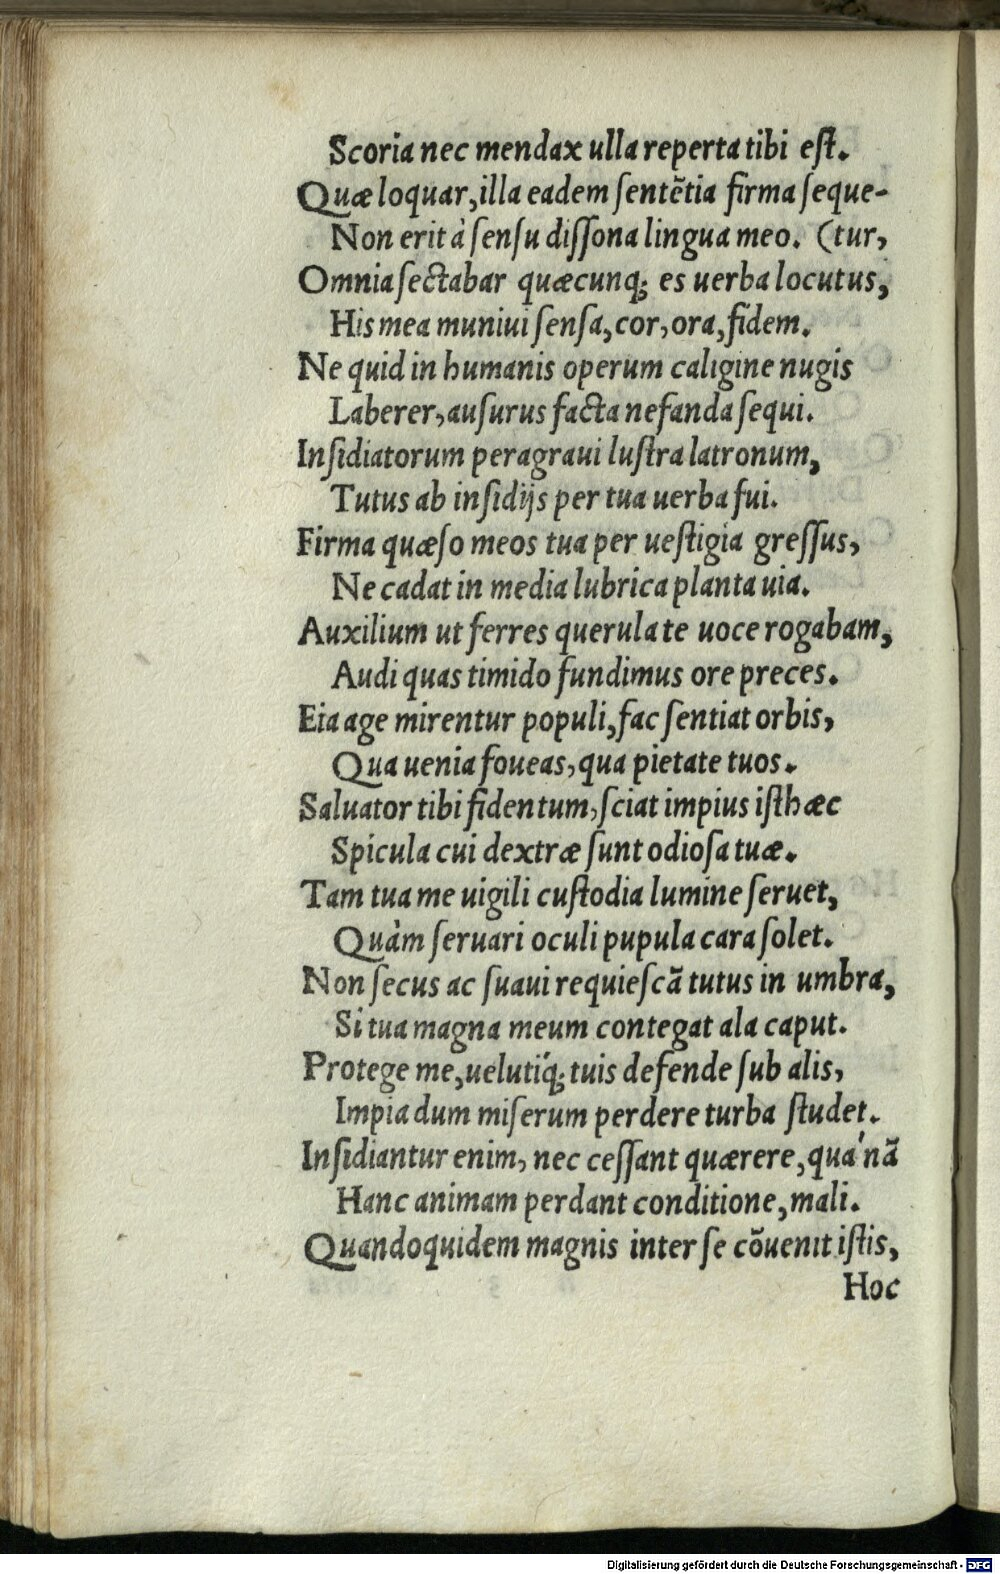 Scoria nec mendax ulla reperta tibi eſt.
Quæ loquar, illa eadem ſentẽtia firma ſeque-
Non erit à ſenſu diſſona lingua meo. (tur,
Omnia ſectabar quæcunq; es uerba locutus,
His mea muniui ſenſa, cor, ora, fidem.
Ne quid in humanis operum caligine nugis
Laberer, auſurus facta nefanda ſequi.
Inſidiatorum peragraui luſtra latronum,
Tutus ab inſidijs per tua uerba fui.
Firma quæſo meos tua per ueſtigia greſſus,
Ne cadat in media lubrica planta uia.
Auxilium ut ferres querula te uoce rogabam,
Audi quas timido fundimus ore preces.
Eia age mirentur populi, fac ſentiat orbis,
Qua uenia foueas, qua pietate tuos.
Saluator tibi fidentum, ſciat impius iſthæc
Spicula cui dextræ ſunt odioſa tuæ.
Tam tua me uigili cuſtodia lumine ſeruet,
Quàm ſeruari oculi pupula cara ſolet.
Non ſecus ac ſuaui requieſcã tutus in umbra,
Si tua magna meum contegat ala caput.
Protege me, uelutiq́; tuis defende ſub alis,
Impia dum miſerum perdere turba ſtudet.
Inſidiantur enim, nec ceſſant quærere, quánã
Hanc animam perdant conditione, mali.
Quandoquidem magnis inter ſe cõuenit iſtis,
Hoc
Digitalisierung gefördert durch die Deutsche Forschungsgemeinschaft - DFG